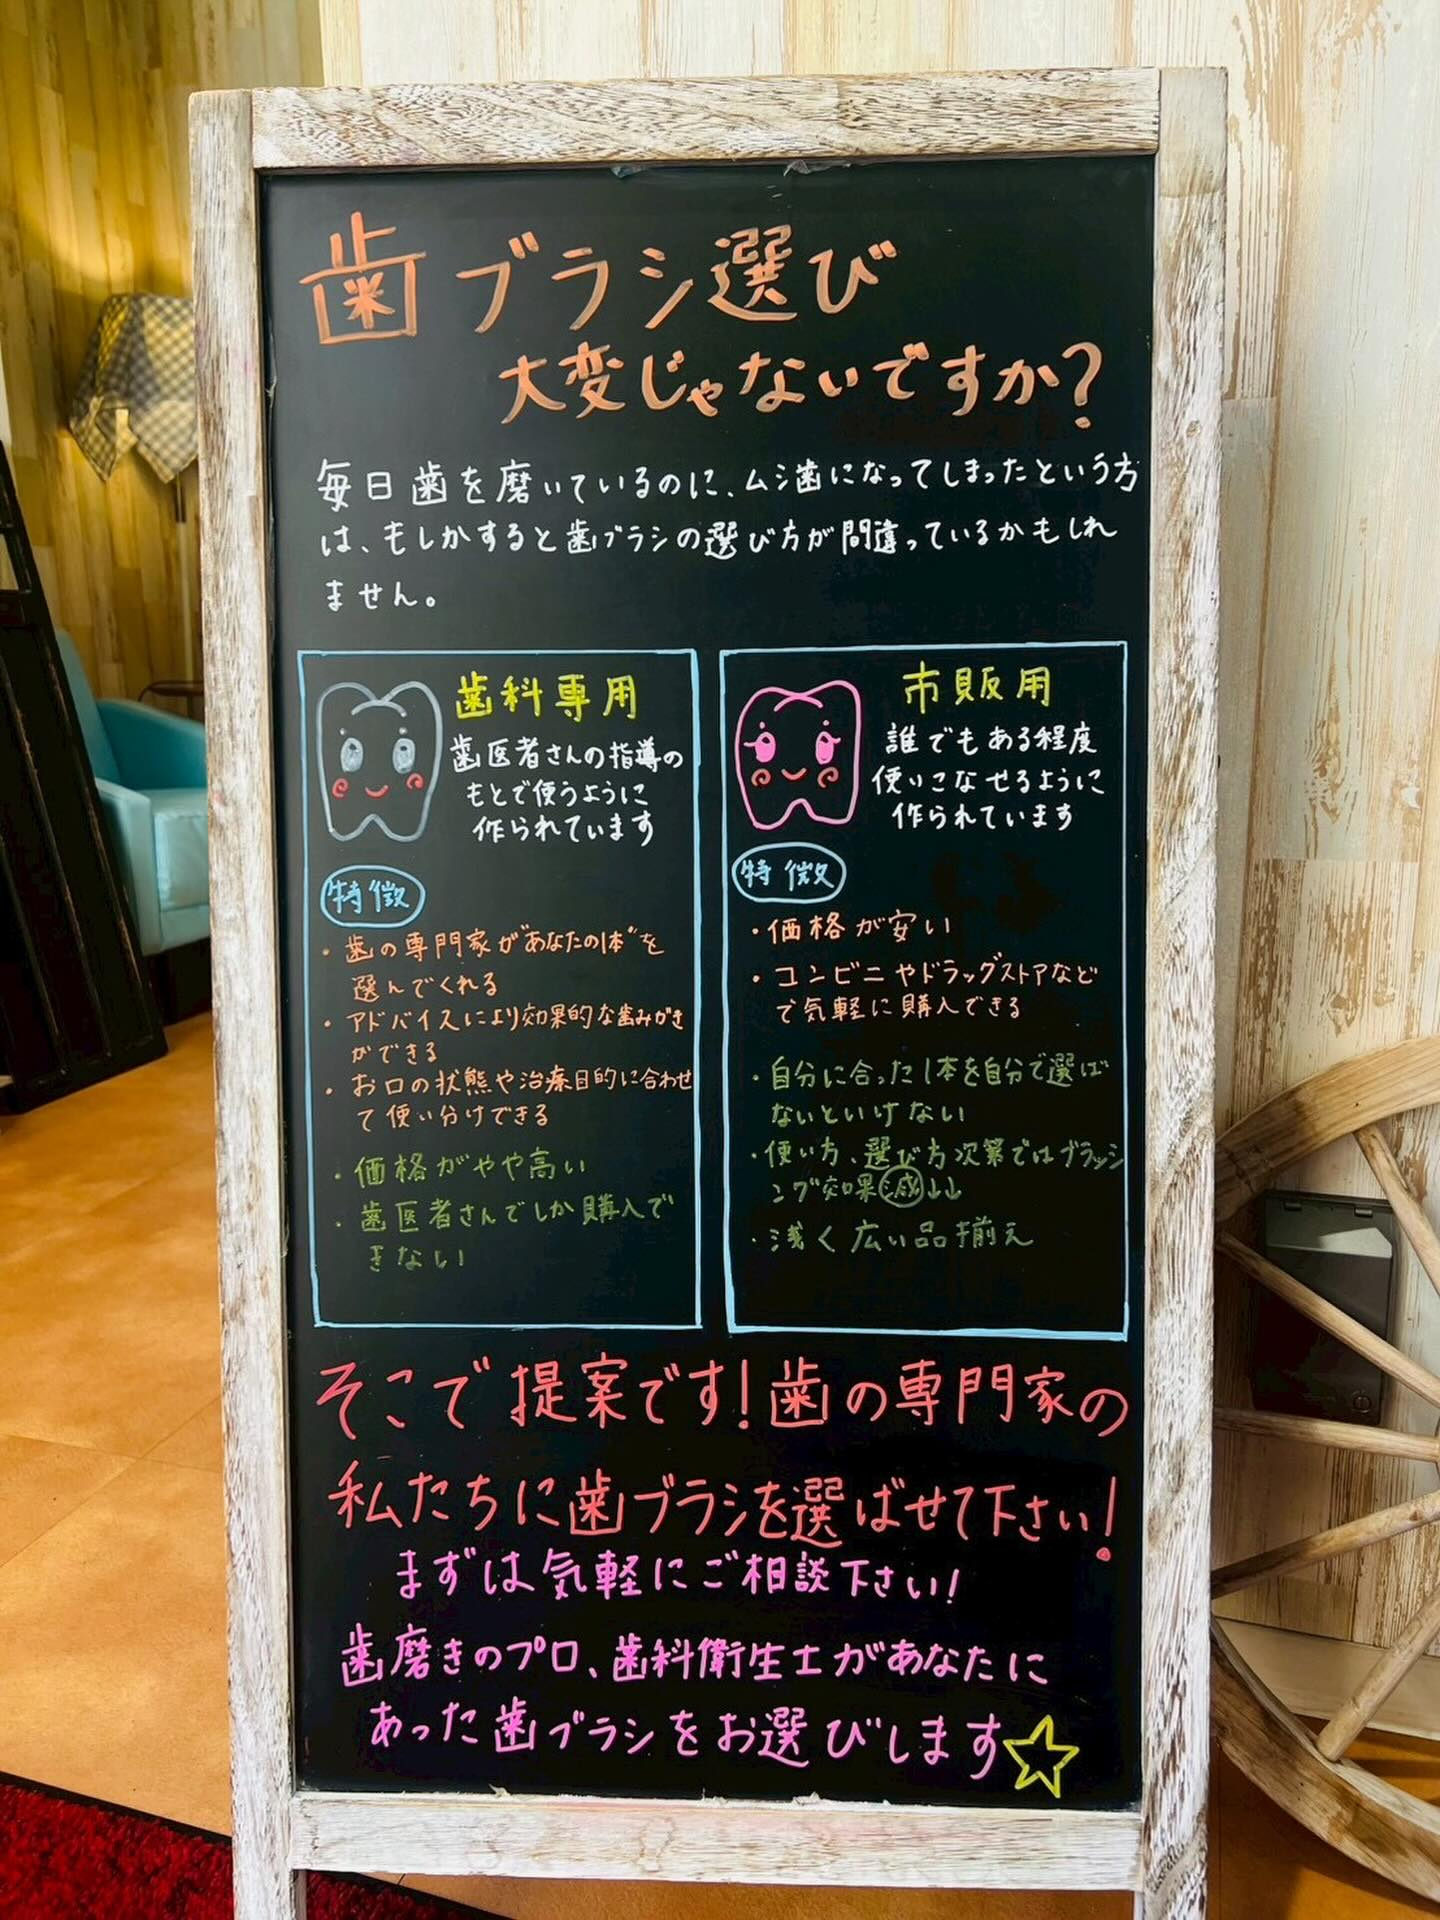 歯ブラシ選び
大変じゃないですか?
毎日歯を磨いているのに、ムシ歯になってしまったという方
は、もしかすると歯ブラシの選び方が間違っているかもしれ
ません。
歯科専用
歯医者さんの指導の
もとで使うように
作られています
特徴
・歯の専門家が"あなたの1本"を
選んでくれる
・アドバイスにより効果的な歯みがき
ができる
・お口の状態や治療目的に合わせ
て使い分けできる
・価格がやや高い
・歯医者さんでしか購入で
きない
市販用
誰でもある程度
使いこなせるように
作られています
特徴
・価格が安い
・コンビニやドラッグストアなど
で気軽に購入できる
・自分に合った1本を自分で選ば
ないといけない
・使い方、選び方次第ではブラッシ
ング効果減↓↓
・浅く広い品揃え
そこで提案です!歯の専門家の
私たちに歯ブラシを選ばせて下さい!
まずは気軽にご相談下さい!
歯磨きのプロ、歯科衛生士があなたに
あった歯ブラシをお選びします☆